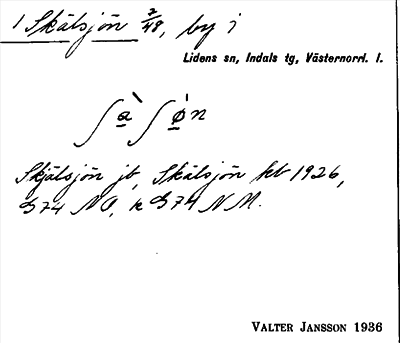 1 Skälsjön 2/48, by i
Lidens sn, Indals tg, Västernorrl. l.
ʃàʃø̀n
Skjälsjön jb, Skälsjön kb 1926,
G74 NO, k G74 NM.
VALTER JANSSON 1936